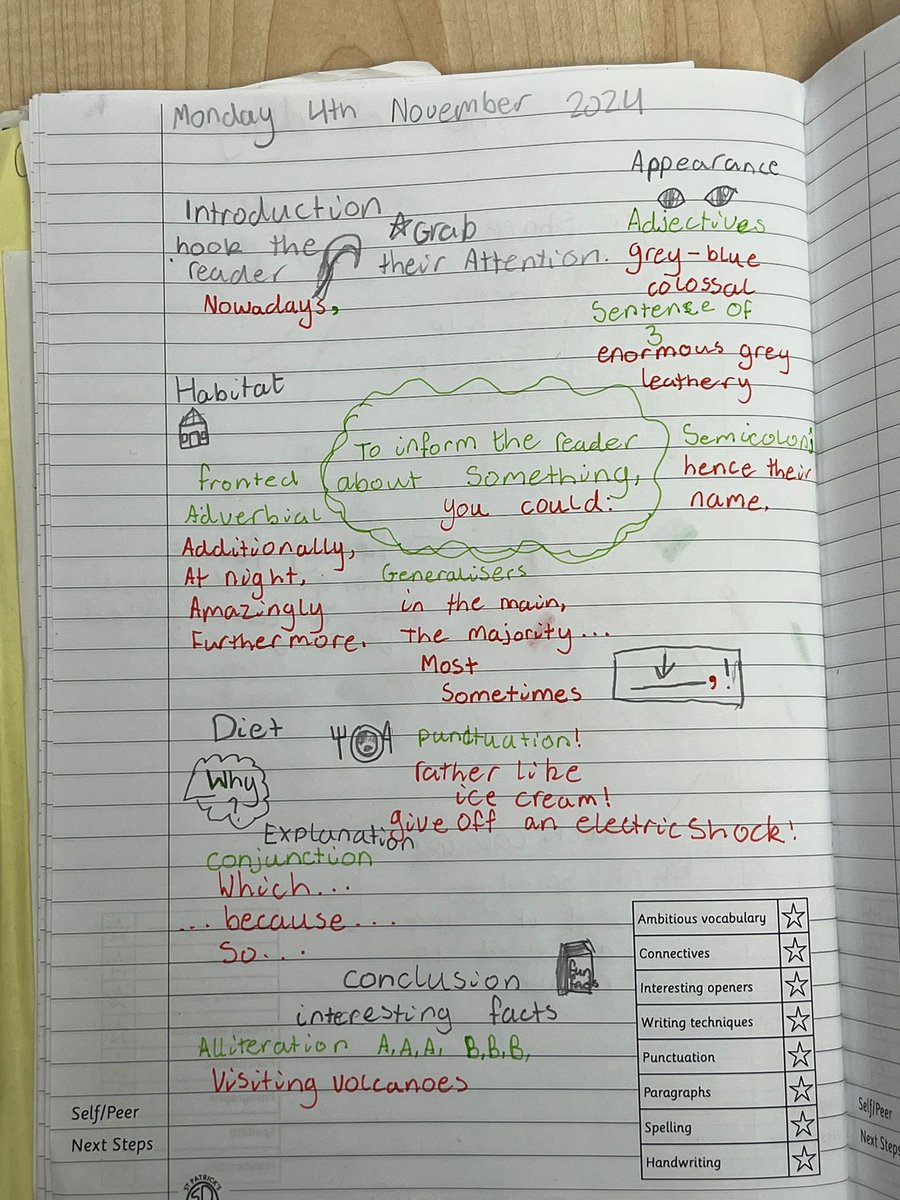 Monday 4th November 2024
Appearance
Introduction
hook the
reader
☆Grab
their Attention.
Nowadays,
Adjectives
grey-blue
colossal
Sentence of
3
enormous grey
leathery
Habitat
To inform the reader
about Something,
you could:
Semicolons
hence their
name.
fronted
Adverbial
Additionally,
At night,
Amazingly
Furthermore.
Generalisers
in the main,
The majority...
Most
Sometimes
,!
Diet
Why
?
Explanation
conjunction
Which...
...because...
So...
punctuation!
rather like
ice cream!
give off an electric shock!
Conclusion
fun
facts
interesting facts
Alliteration A,A,A, B,B,B,
Visiting volcanoes
Ambitious vocabulary
Connectives
Interesting openers
Writing techniques
Punctuation
Paragraphs
Spelling
Handwriting
Self/Peer
Next Steps
ST PATRICK'S
Self/Peer
Next Steps